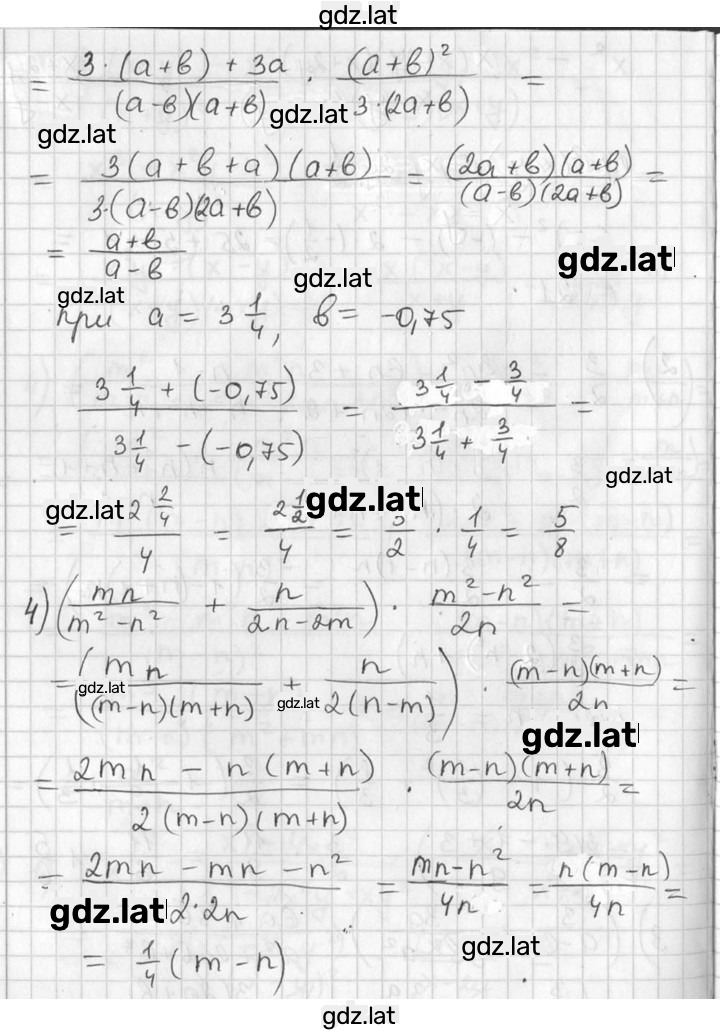 gdz.lat
= (3·(a+в) + 3a)/((a-в)(a+в)) · (a+в)²/(3·(2a+в)) =
gdz.lat
gdz.lat
= (3(a+в+a)(a+в))/(3·(a-в)(2a+в)) = ((2a+в)(a+в))/((a-в)(2a+в)) =
= (a+в)/(a-в)
gdz.lat
gdz.lat
gdz.lat
при a = 3 1/4, в = -0,75
(3 1/4 + (-0,75))/(3 1/4 - (-0,75)) = (3 1/4 - 3/4)/(3 1/4 + 3/4) =
gdz.lat
gdz.lat
gdz.lat
= (2 2/4)/4 = (2 1/2)/4 = 5/2 · 1/4 = 5/8
4) (mn/(m²-n²) + n/(2n-2m)) · (m²-n²)/2n =
= (mn/((m-n)(m+n)) + n/(2(n-m))) · ((m-n)(m+n))/2n =
gdz.lat
gdz.lat
gdz.lat
= (2mn - n(m+n))/(2(m-n)(m+n)) · ((m-n)(m+n))/2n =
= (2mn - mn - n²)/(2·2n) = (mn-n²)/4n = (n(m-n))/4n =
gdz.lat
gdz.lat
= 1/4 (m-n)
gdz.lat